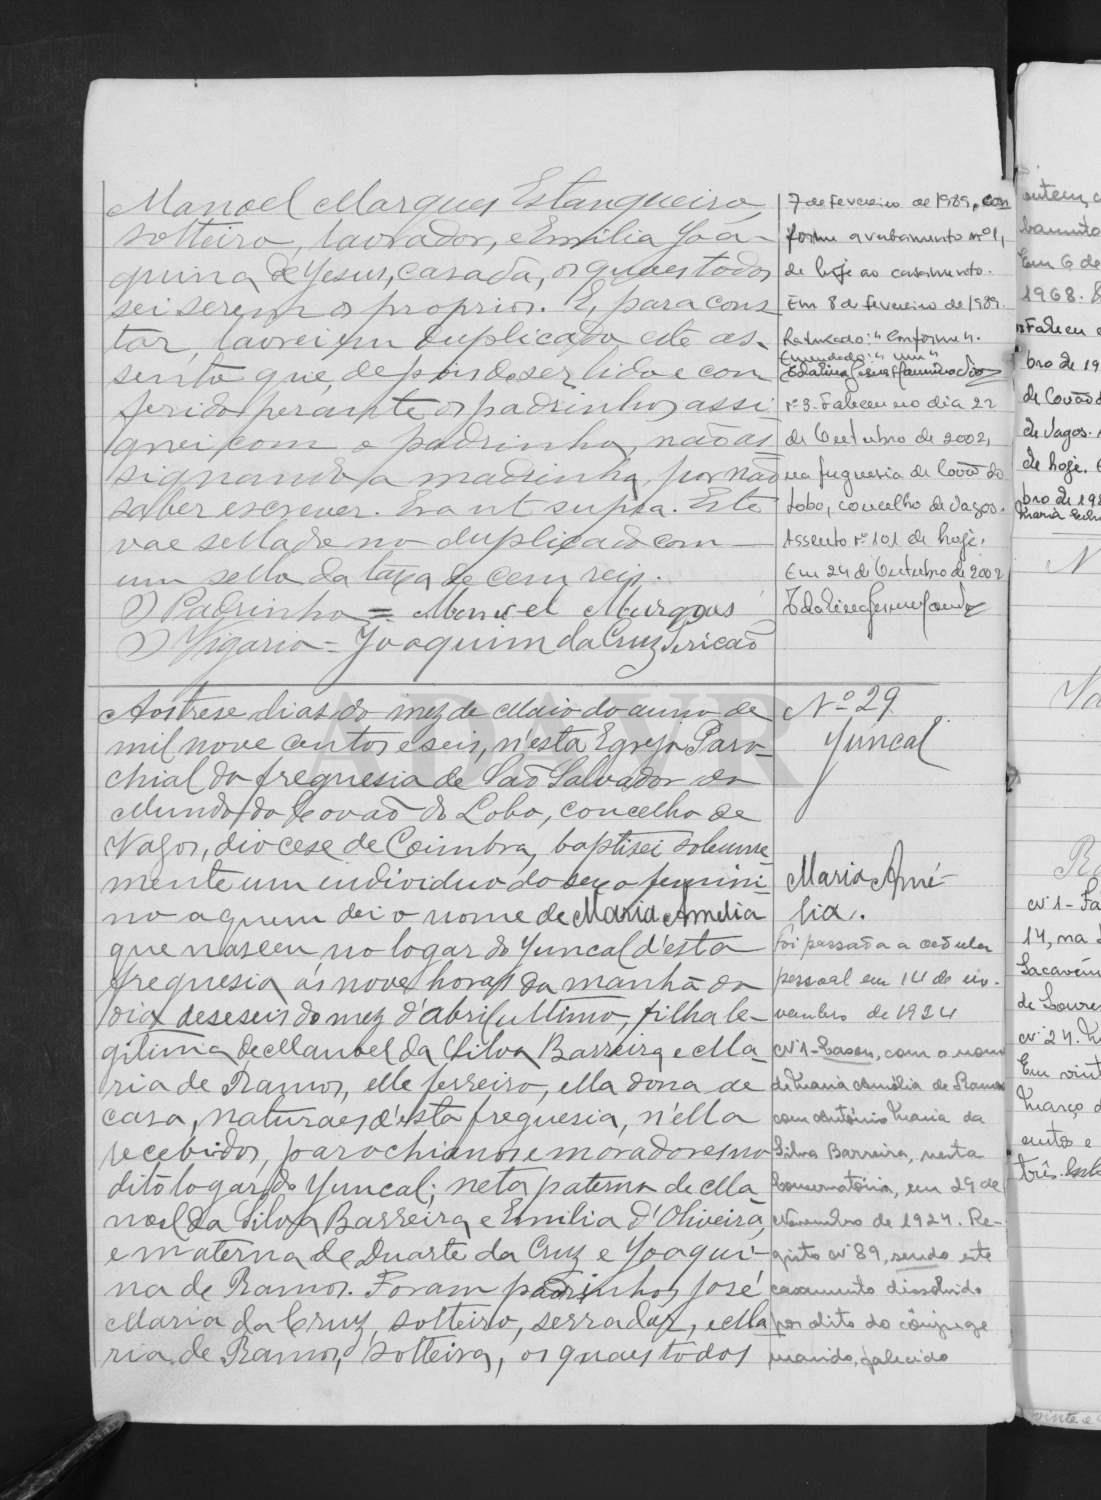 Manoel Marques Estanqueiro,
solteiro, lavrador, e Emilia Joa-
quina de Jesus, casada, os quaes todos
sei serem os proprios. E, para cons
tar, lavrei em duplicado este as-
sento que, depois de ser lido e con
ferido perante os padrinhos assi-
gnei com o padrinho, não as
signando a madrinha, por não
saber escrever. Era ut supra. Este
vae sellado no duplicado com
um sello da taxa de cem reis.
O Padrinho = Manuel Marques
O Vigario = Joaquim da Cruz Pericão
7 de Fevereiro de 1989, con
forme averbamento nº 1,
de hoje ao casamento.
Em 8 de Fevereiro de 1989.
Ratificado: "Conforme".
Emendado: "um"
Nº 3 - Faleceu no dia 22
de Outubro de 2002,
na freguesia de Covão do
Lobo, concelho de Vagos.
Assento nº 101 de hoje.
Em 24 de Outubro de 2002
ADAVR
Aos trese dias do mez de Maio do anno de
mil nove centos e seis, n'esta Egreja Paro-
chial da freguesia de São Salvador do
Mundo do Covão do Lobo, concelho de
Vagos, diocese de Coimbra, baptisei solemne
mente um individuo do sexo femini-
no a quem dei o nome de Maria Amelia
que nasceu no logar do Juncal d'esta
freguesia ás nove horas da manhã do
dia deseseis do mez d'abril ultimo, filha le-
gitima de Manoel da Silva Barreira e Ma-
ria de Ramos, elle ferreiro, ella dona de
casa, naturaes d'esta freguesia, n'ella
recebidos, parochianos e moradores no
dito logar do Juncal; neta paterna de Ma
noel da Silva Barreira e Emilia d'Oliveira,
e materna de Duarte da Cruz e Joaqui-
na de Ramos. Foram padrinhos José
Maria da Cruz, solteiro, serrador, e Ma
ria de Ramos, solteira, os quaes todos
Nº 29
Juncal
Maria Amé-
lia.
Foi passada a cedula
pessoal em 14 de no-
vembro de 1924
Nº 1 - Casou, com o nome
de Maria Amélia de Ramos
com António Maria da
Silva Barreira, nesta
Conservatória, em 29 de
Novembro de 1924. Re-
gisto nº 89, sendo este
casamento dissolvido
por óbito do cônjuge
marido, falecido
ontem,
Em 6 de
1968.
Faleceu
bro de 19
de Covão d
de Vagos.
de hoje.
bro de 198
Nº 1 - Fa
14, na
Sacavém
de Loures
Nº 24.
Em vint
Março d
entos e
três.